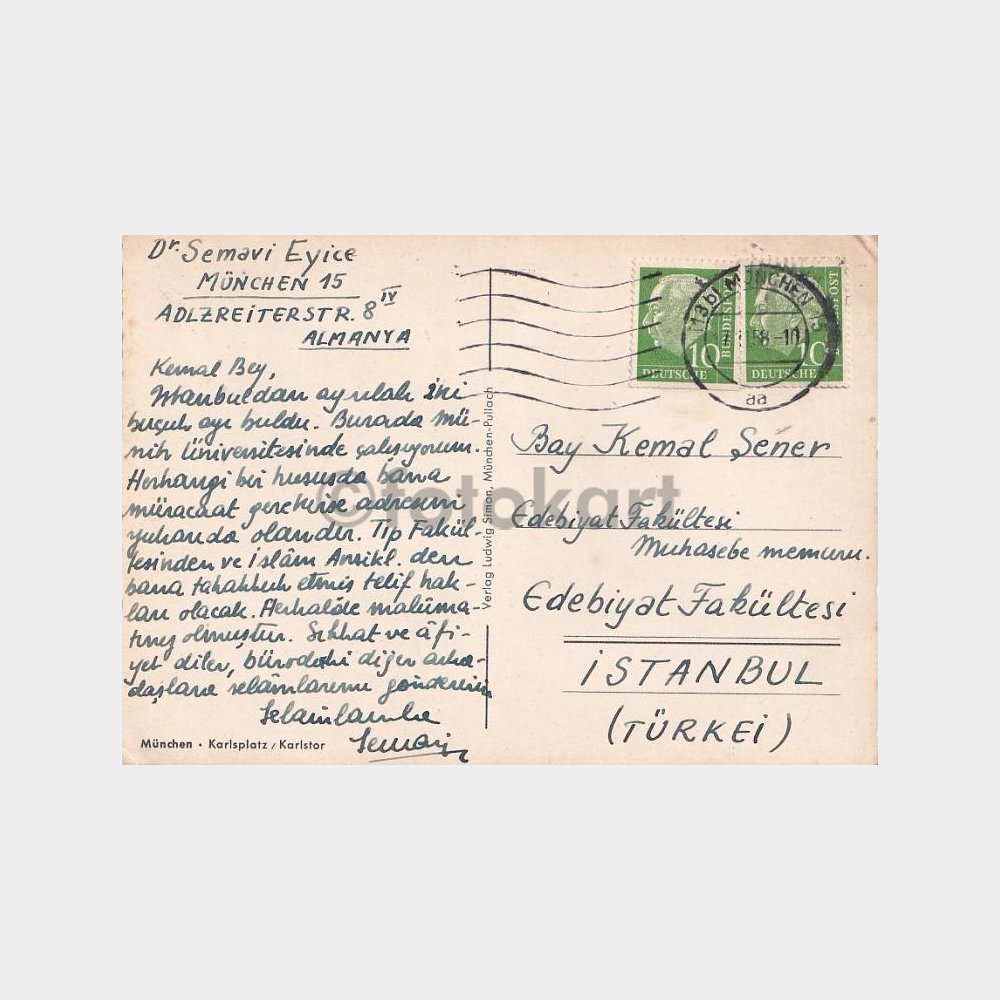 Dr. Semavi Eyice
MÜNCHEN 15
ADLZREITERSTR. 8 IV
ALMANYA
Kemal Bey,
İstanbuldan ayrılalı iki
buçuk ayı buldu. Burada Mü-
nih Üniversitesinde çalışıyorum.
Herhangi bir hususda bana
müracaat gerekirse adresim
yukarıda olandır. Tıp Fakül-
tesinden ve İslâm Ansikl. den
bana tahakkuk etmiş telif hak-
ları olacak. Herhalde malûma-
tınız olmuştur. Sıhhat ve âfi-
yet diler, bürodaki diğer arka-
daşlara selâmlarımı gönderirim
Selâmlarımla
Semavi
München • Karlsplatz / Karlstor
Verlag Ludwig Simon, München-Pullach
10
DEUTSCHE
BUNDESPOST
10
DEUTSCHE
POST
(13b) MÜNCHEN 15
58-10
aa
Bay Kemal Şener
Edebiyat Fakültesi
Muhasebe memuru.
Edebiyat Fakültesi
İSTANBUL
(TÜRKEİ)
©fotokart